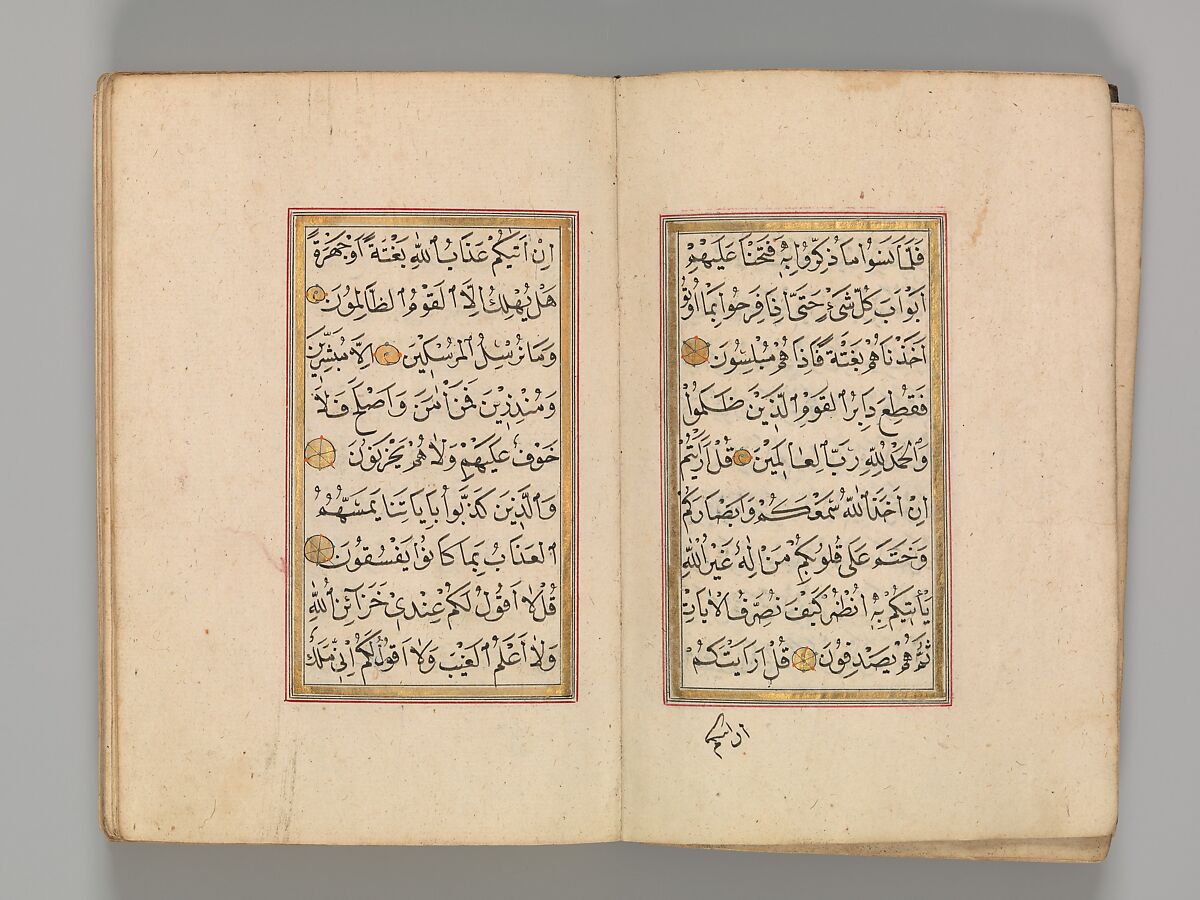 فَلَمَّا نَسُوا مَا ذُكِّرُوا بِهِ فَتَحْنَا عَلَيْهِمْ
اَبْوَابَ كُلِّ شَىْءٍ حَتّٰى اِذَا فَرِحُوا بِمَا اُوتُو
اَخَذْنَاهُمْ بَغْتَةً فَاِذَا هُمْ مُبْلِسُونَ
فَقُطِعَ دَابِرُ الْقَوْمِ الَّذِينَ ظَلَمُوا
وَالْحَمْدُ لِلّٰهِ رَبِّ الْعَالَمِينَ قُلْ اَرَاَيْتُمْ
اِنْ اَخَذَ اللّٰهُ سَمْعَكُمْ وَاَبْصَارَكُمْ
وَخَتَمَ عَلٰى قُلُوبِكُمْ مَنْ اِلٰهٌ غَيْرُ اللّٰهِ
يَأْتِيكُمْ بِهِ اُنْظُرْ كَيْفَ نُصَرِّفُ الْاٰيَاتِ
ثُمَّ هُمْ يَصْدِفُونَ قُلْ اَرَاَيْتَكُمْ
ان اتيكم
اِنْ اَتٰيكُمْ عَذَابُ اللّٰهِ بَغْتَةً اَوْ جَهْرَةً
هَلْ يُهْلَكُ اِلَّا الْقَوْمُ الظَّالِمُونَ
وَمَا نُرْسِلُ الْمُرْسَلِينَ اِلَّا مُبَشِّرِينَ
وَمُنْذِرِينَ فَمَنْ اٰمَنَ وَاَصْلَحَ فَلَا
خَوْفٌ عَلَيْهِمْ وَلَا هُمْ يَحْزَنُونَ
وَالَّذِينَ كَذَّبُوا بِاٰيَاتِنَا يَمَسُّهُمُ
الْعَذَابُ بِمَا كَانُوا يَفْسُقُونَ
قُلْ لَا اَقُولُ لَكُمْ عِنْدِى خَزَائِنُ اللّٰهِ
وَلَا اَعْلَمُ الْغَيْبَ وَلَا اَقُولُ لَكُمْ اِنِّى مَلَكٌ